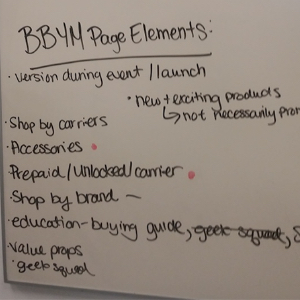 BBYM Page Elements:
· version during event / launch
· new + exciting products
↳ not necessarily
· Shop by carriers
· Accessories
Prepaid / Unlocked / carrier
· Shop by brand —
· education - buying guide, geek squad,
· Value props
· geek squad